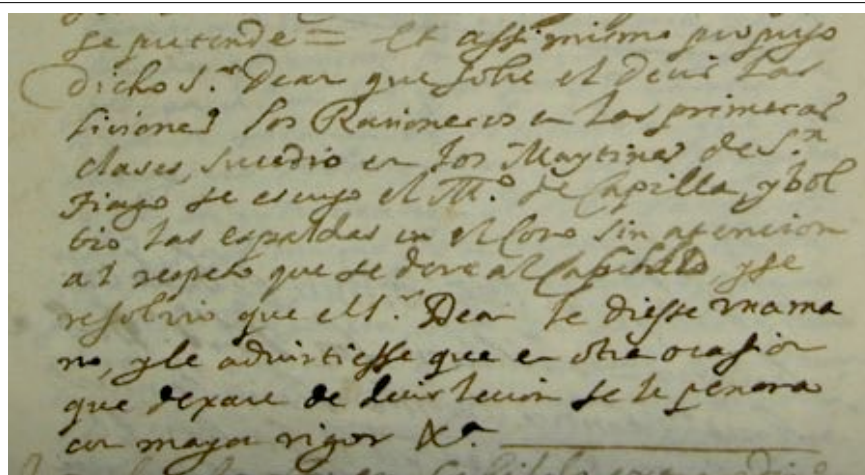 se pretende = Et assimismo propuso
dicho S.r Dean que sobre el decir las
liciones los Racioneros en las primeras
clases, sucedio en los Maytines de S.n
tiago se escuso el M.o de Capilla, y bol
bio las espaldas en el Coro sin atencion
al respeto que se deve al Cabildo, y se
resolvio que el S.r Dean le diesse vna ma
no, y le advirtiesse que en otra ocasion
que dexare de decir lecion se le penara
con mayor rigor &a.